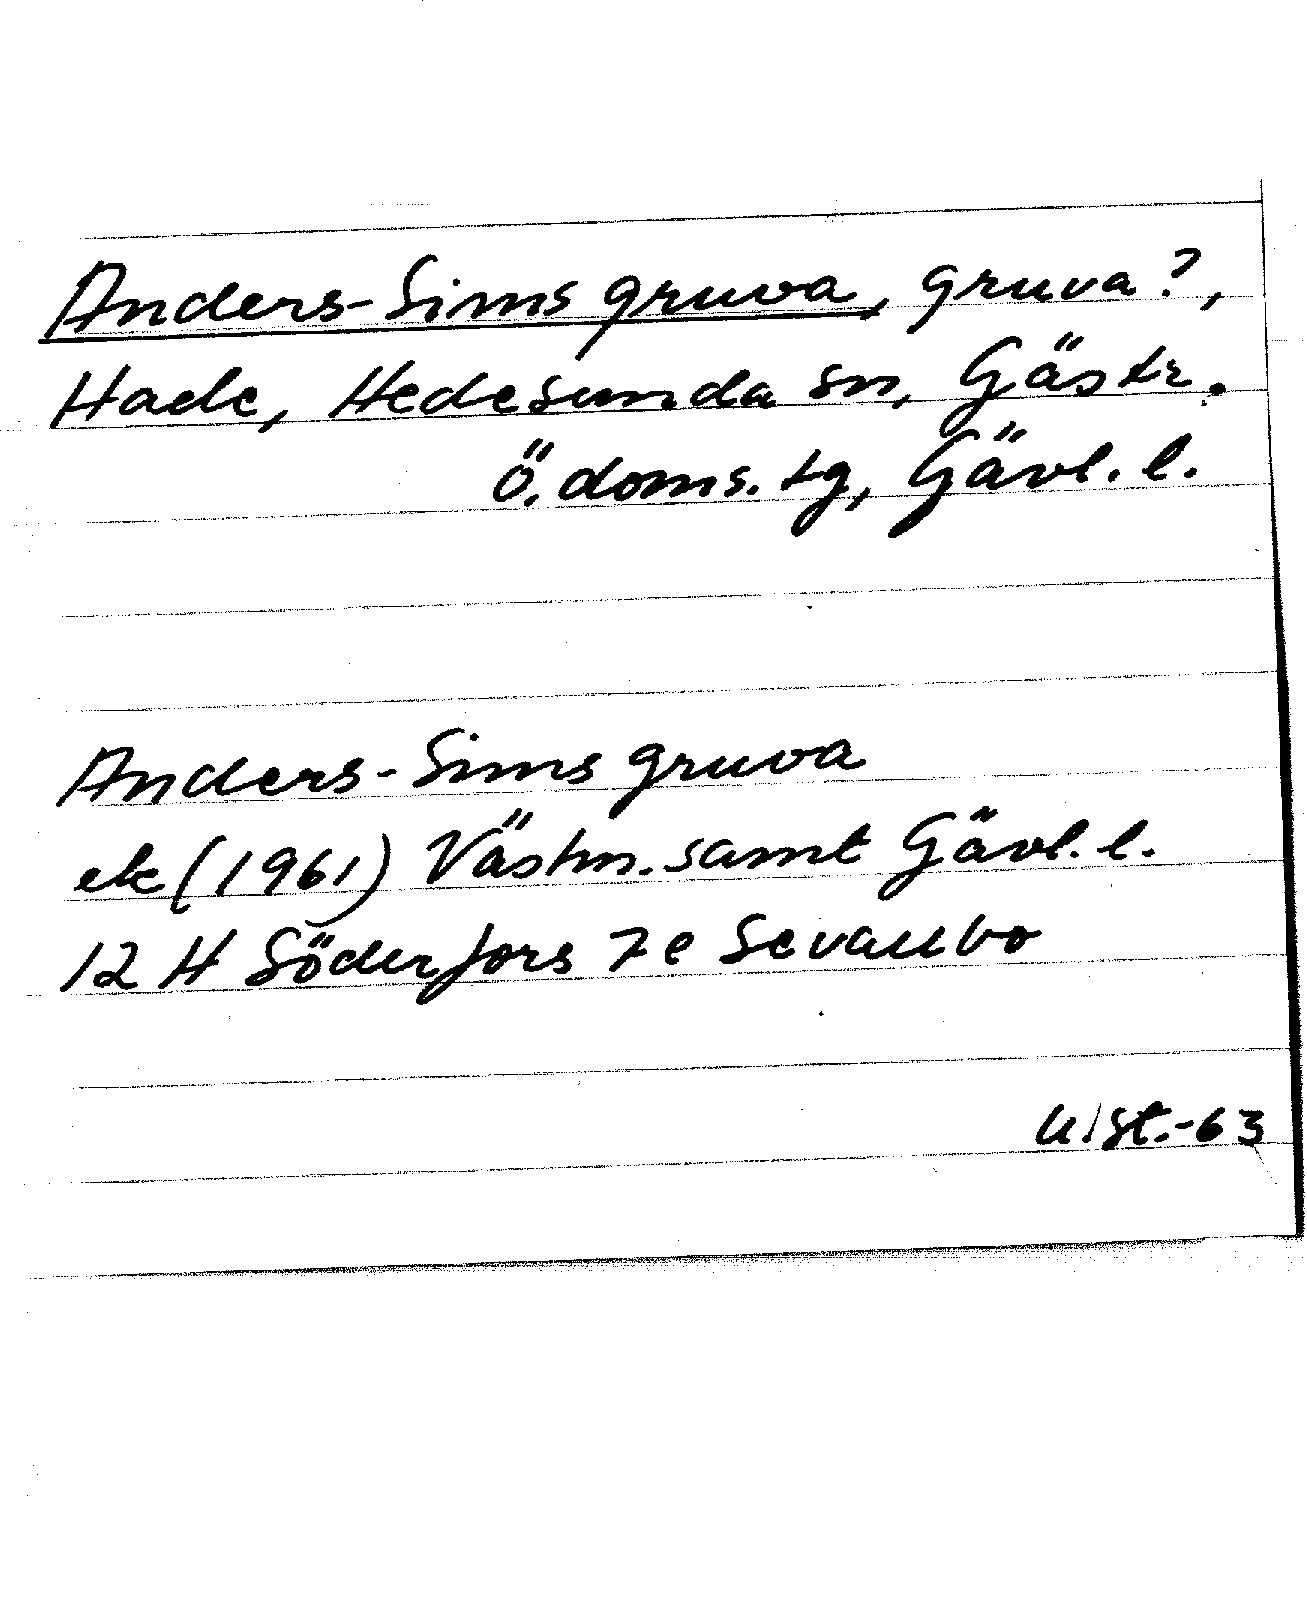 Anders-Sims gruva, gruva?,
Hade, Hedesunda sn, Gästr.
Ö. doms. tg, Gävl. l.
Anders-Sims gruva
ek (1961) Västm. samt Gävl. l.
12 H Söderfors 7 e Sevallbo
-63